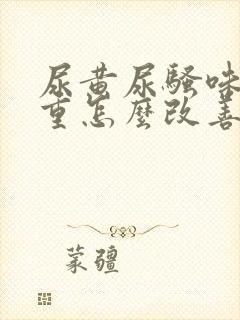 尿黄尿騷味
重怎麼改善
蒙疆